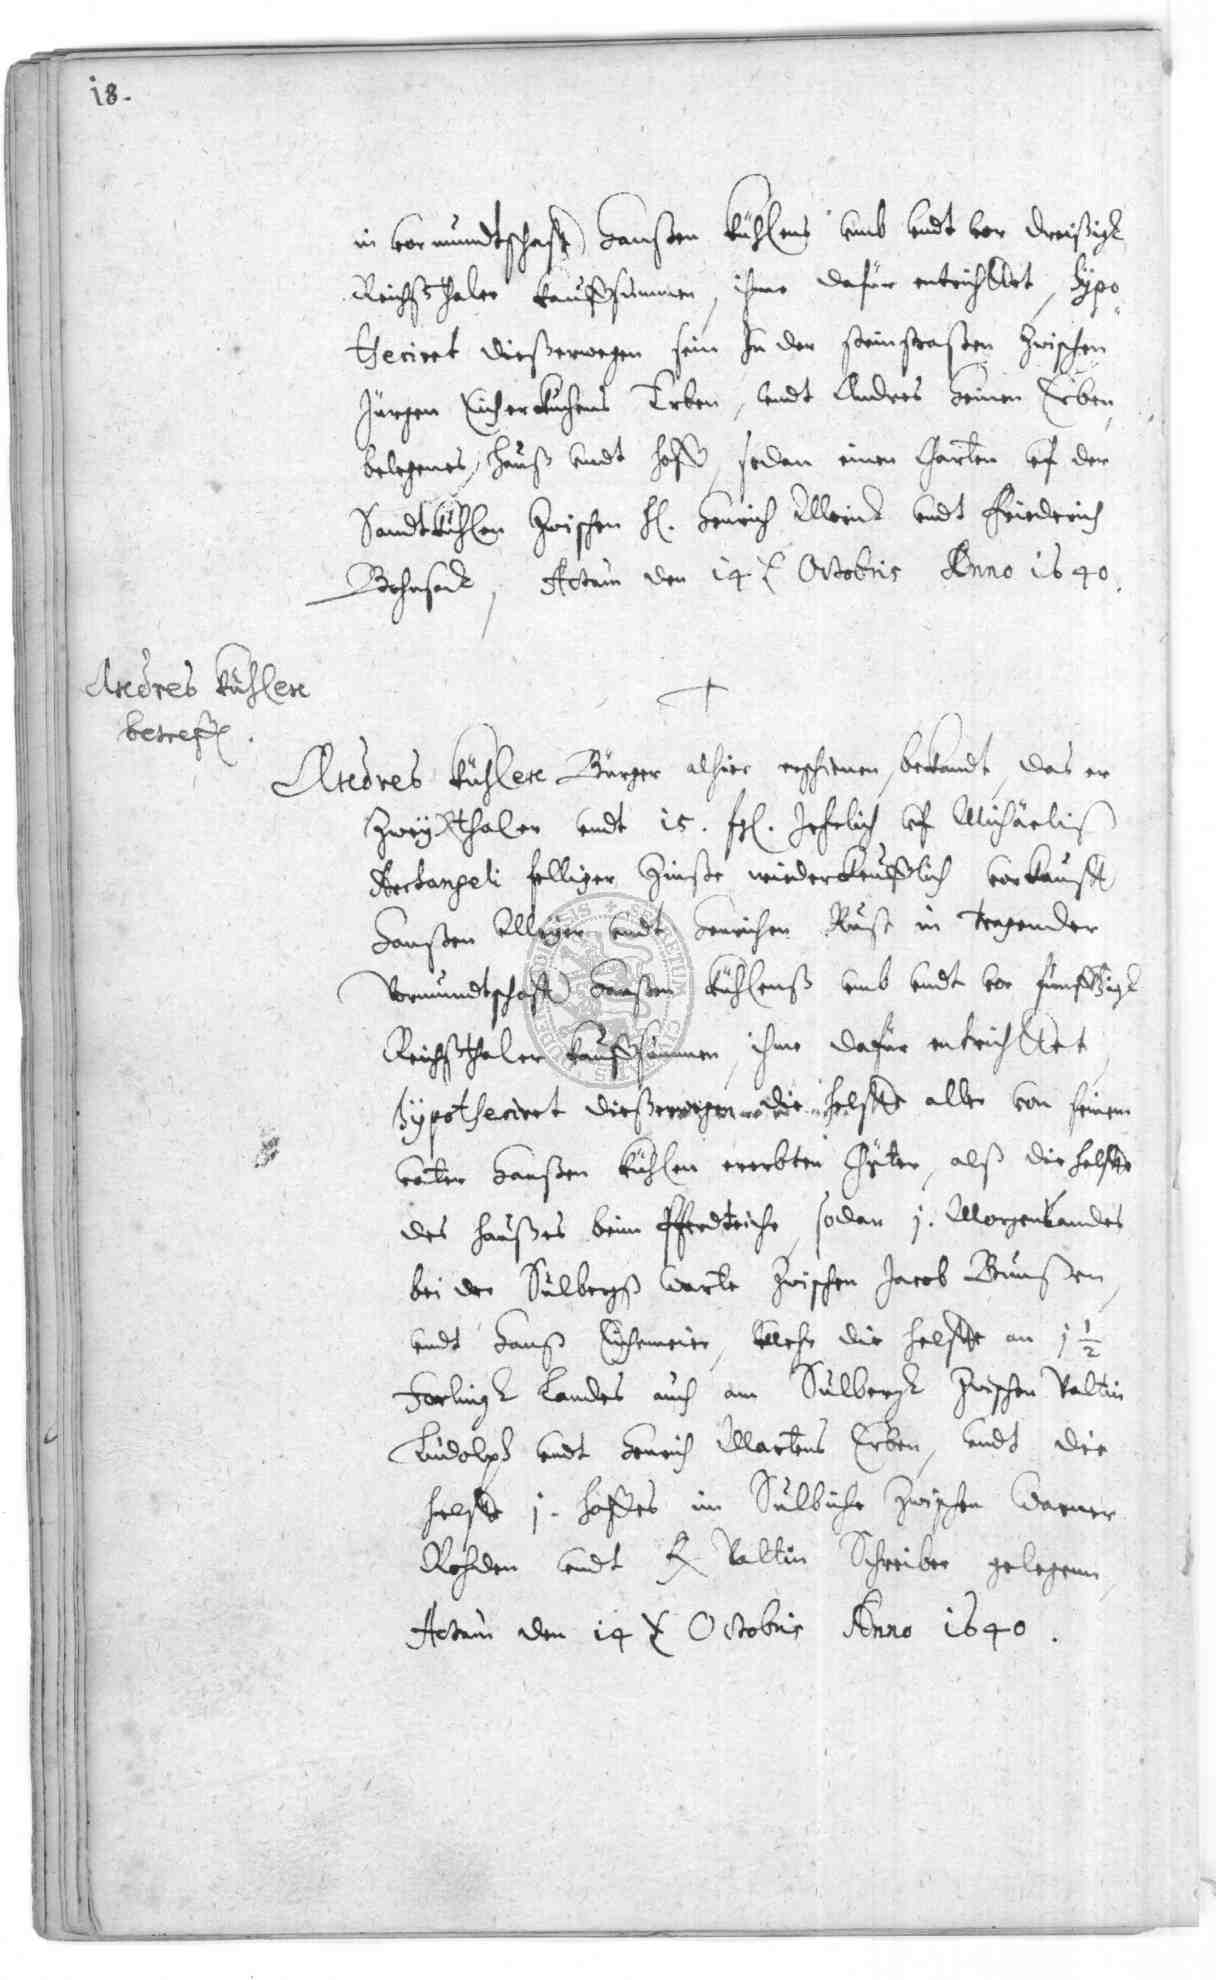 18.
in vormundtschafft Hanßen Kühlens umb undt vor dreißigk
Reichßthaler Kauffsummen, ihme dafür entrichttet, Hypo
theciret dießerwegen sein In der steinstraßen zwischen
Jürgen Erben, undt Andres Heinen Erben,
belegenes, Hauß undt Hoff, sodan einen Garten uf der
Sandtkuhlen zwischen H. Henrich undt Friedrich
Bohnsack, Actum den 14 t Octobris Anno 1640.
Andres Kühlen
betreff.
Andres Kühlen Bürger alhier erschienen, bekandt, das er
zwey Rthaler undt 15. fgl. Jehrlich uf Michaelis
Archangeli felliger Zinße wiederkeufflich vorkaufft
Hanßen Meyer undt Henrichen Rust in tragender
Vormundtschafft Hanßen Kühlenß umb undt vor funfftzigk
Reichßthaler Kauffsummen, ihme dafür entrichttet,
Hypotheciret dießerwegen die helffte aller von seinem
vater Hanßen Kühlen ererbten Güter, alß die helffte
des Haußes beim Pferdteiche, sodan 1. Morgen Landes
bei der Sülbergß warte zwischen Jacob Brunßen,
undt Hanß Eichmeier, Mehr die helffte an 1 1/2
Forlingk Landes auch am Sülbergk zwischen Valtin
Ludolph undt Henrich Martens Erben, undt die
helffte 1. Hoffes im Sülbiche zwischen Warner
Rohden undt H. Valtin Schreiber gelegenn,
Actum den 14 t Octobris Anno 1640.